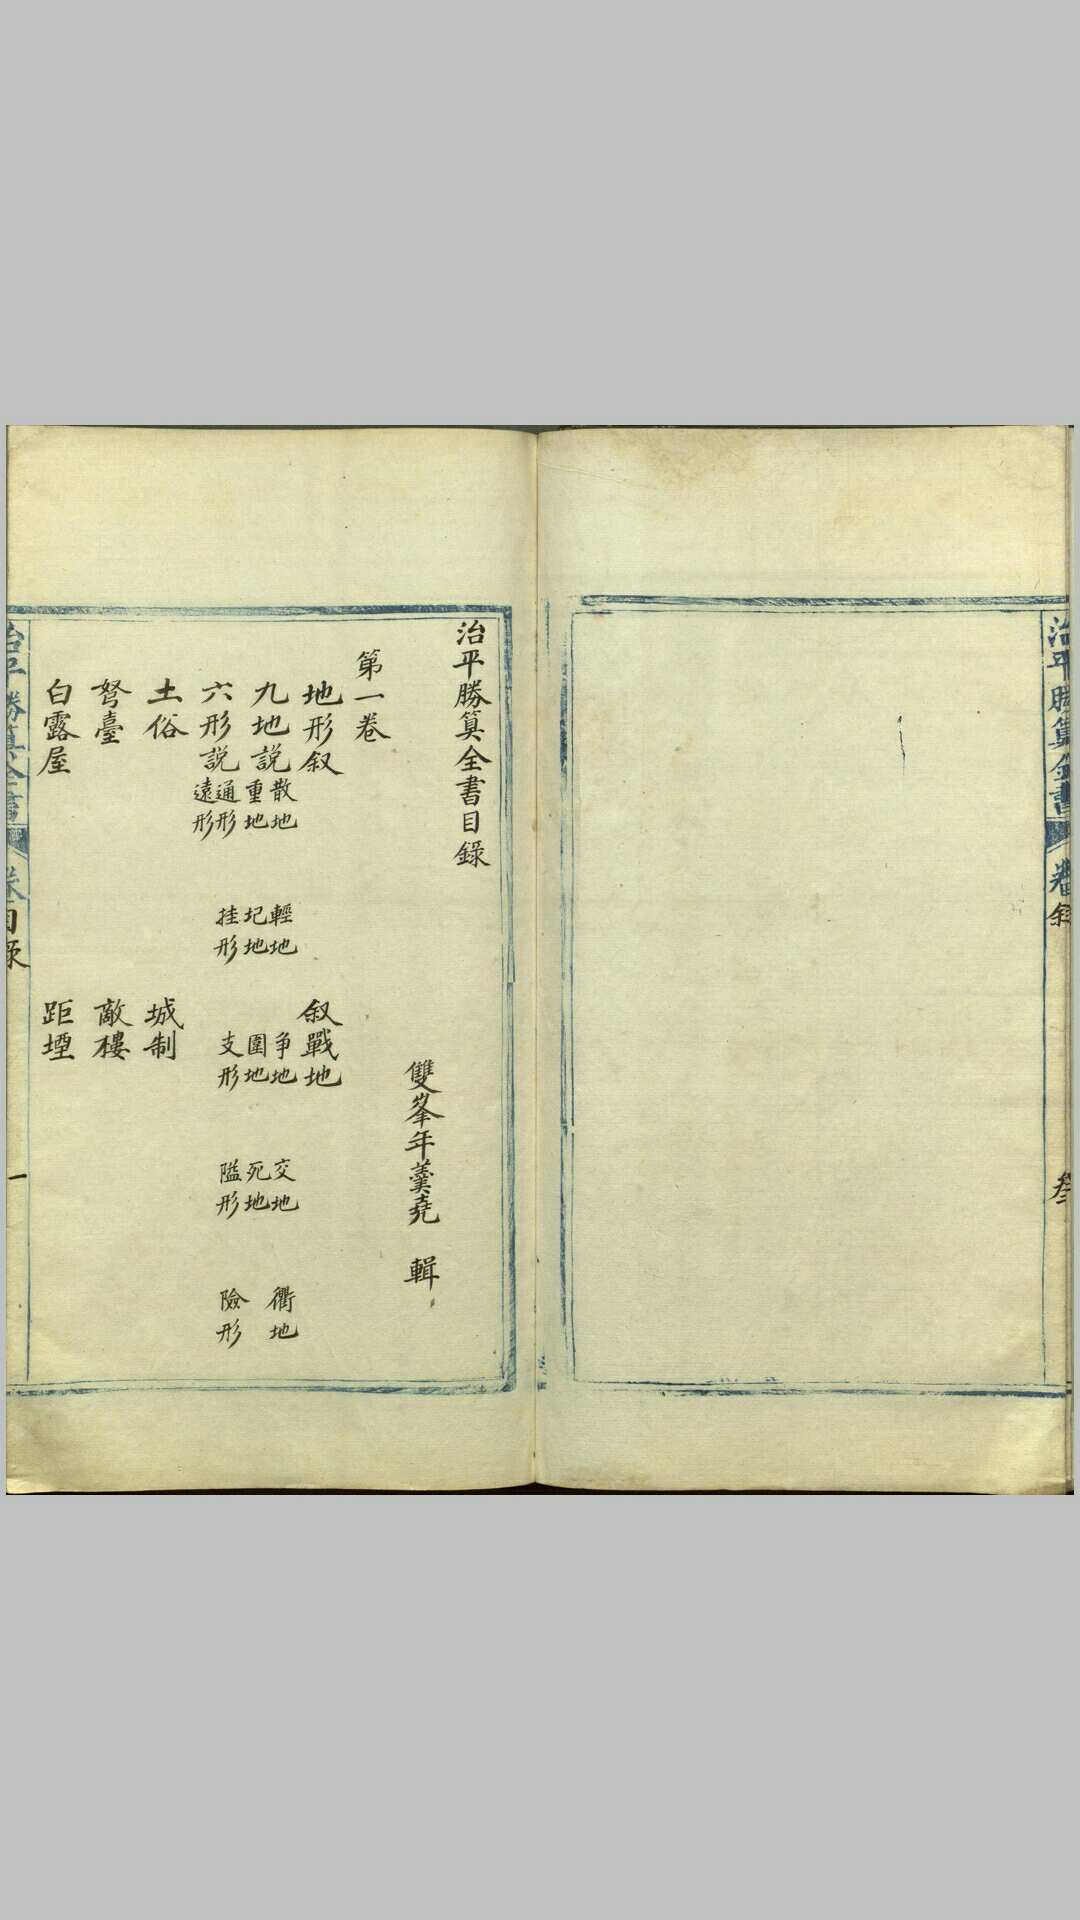 治平勝算全書
卷
叙
叁
治平勝算全書目錄
雙峯年羹堯 輯
第一卷
地形叙 叙戰地
九地説 散地 輕地 争地 交地 衢地
重地 圮地 圍地 死地
六形説 通形 挂形 支形 隘形 險形
遠形
土俗 城制
弩臺 敵樓
白露屋 距堙
治平勝算全書
卷目录
一